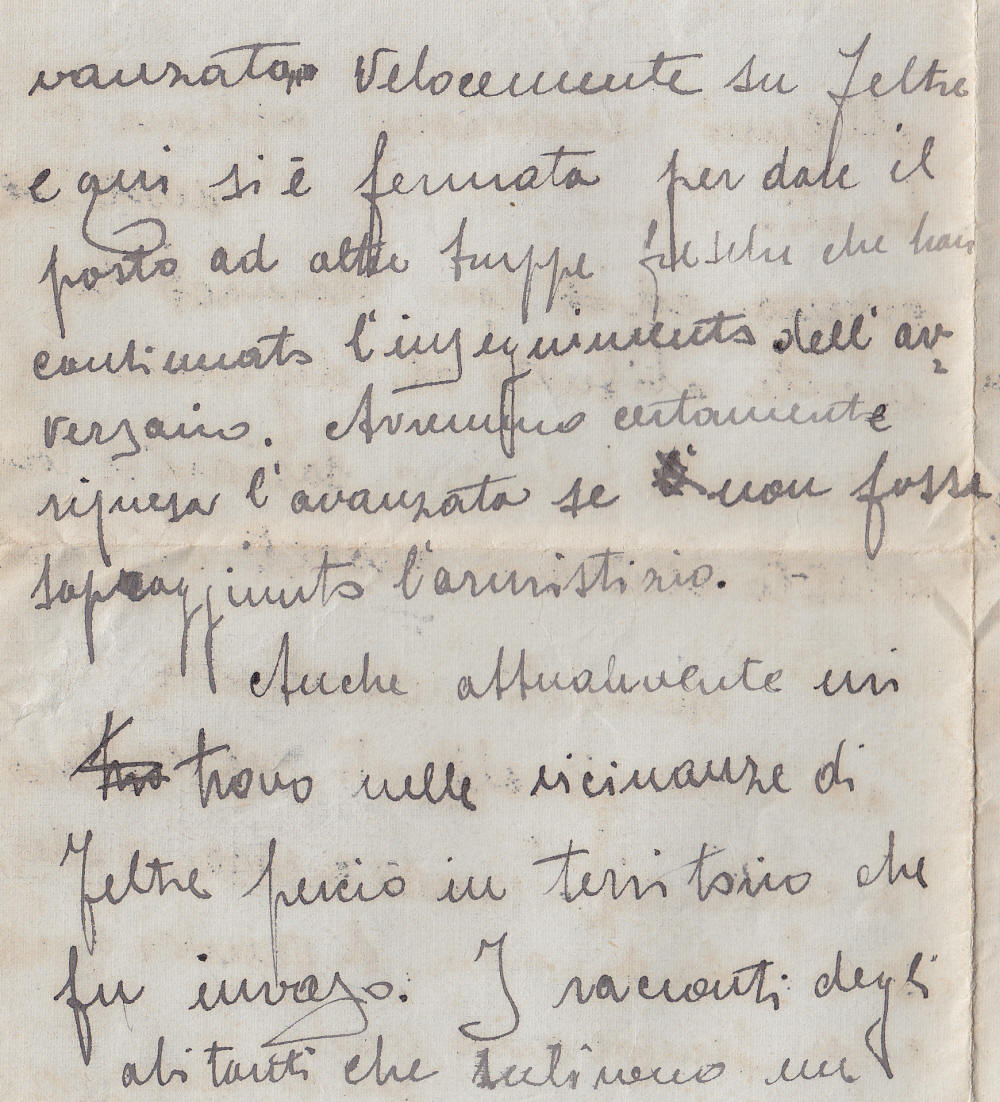 vanzata velocemente su Feltre
e qui si è fermata per dare il
posto ad altre truppe fresche che han
continuato l'inseguimento dell'av=
versario. Avremmo certamente
ripresa l'avanzata se non fosse
sopraggiunto l'armistizio. -
Anche attualmente mi
trovo nelle vicinanze di
Feltre perciò in territorio che
fu invaso. I racconti degli
abitanti che subirono un